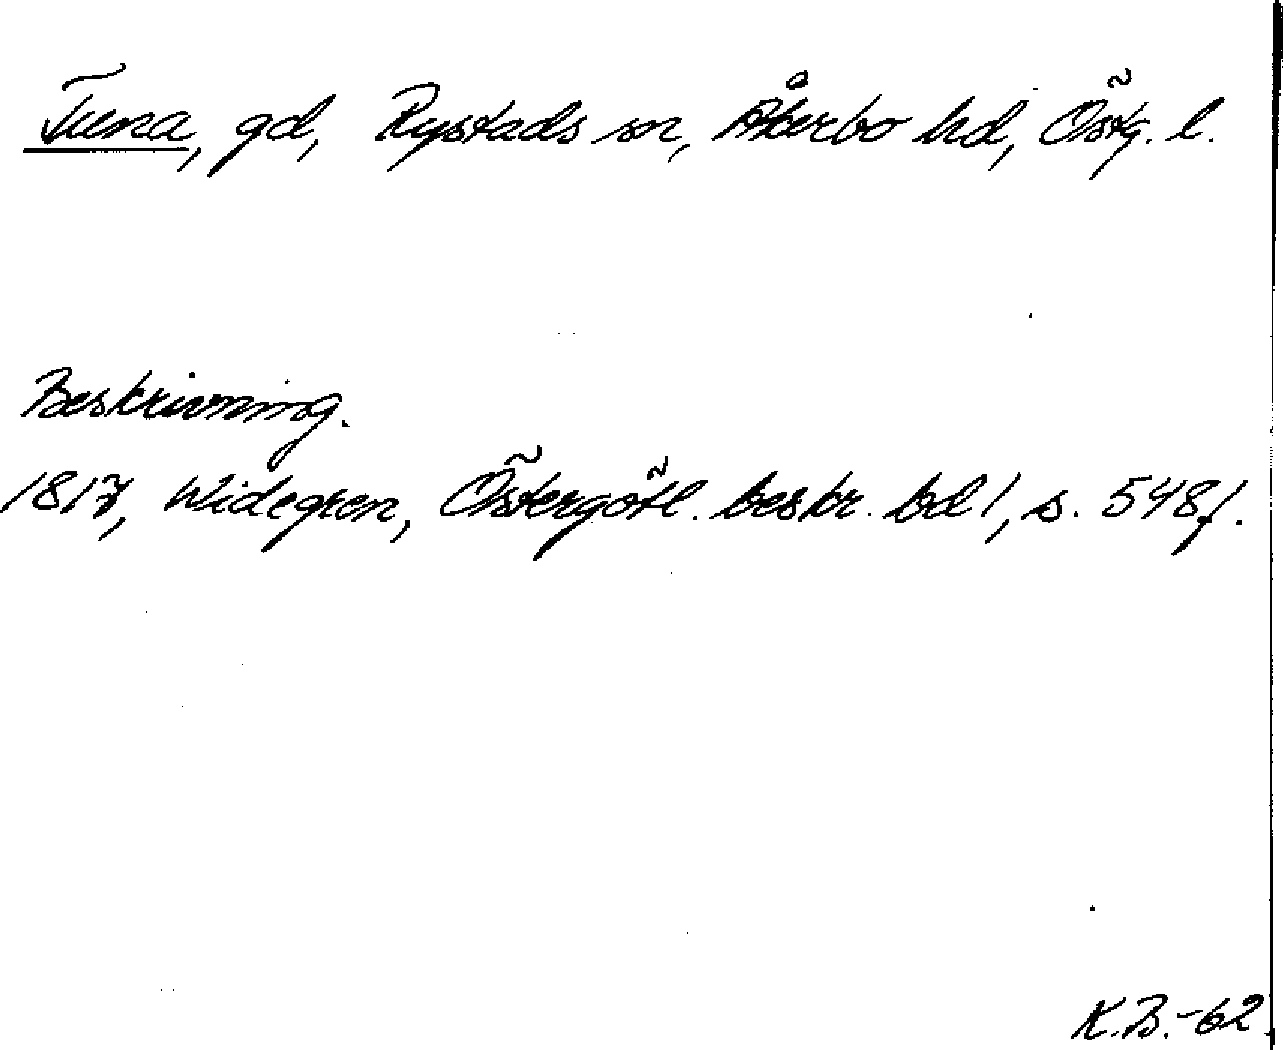 Tuna, gd, Rystads sn, Åkerbo hd, Östg. l.
Beskrivning.
1817, Widegren, Östergötl. beskr. bd 1, s. 548 f.
K.B.-62.